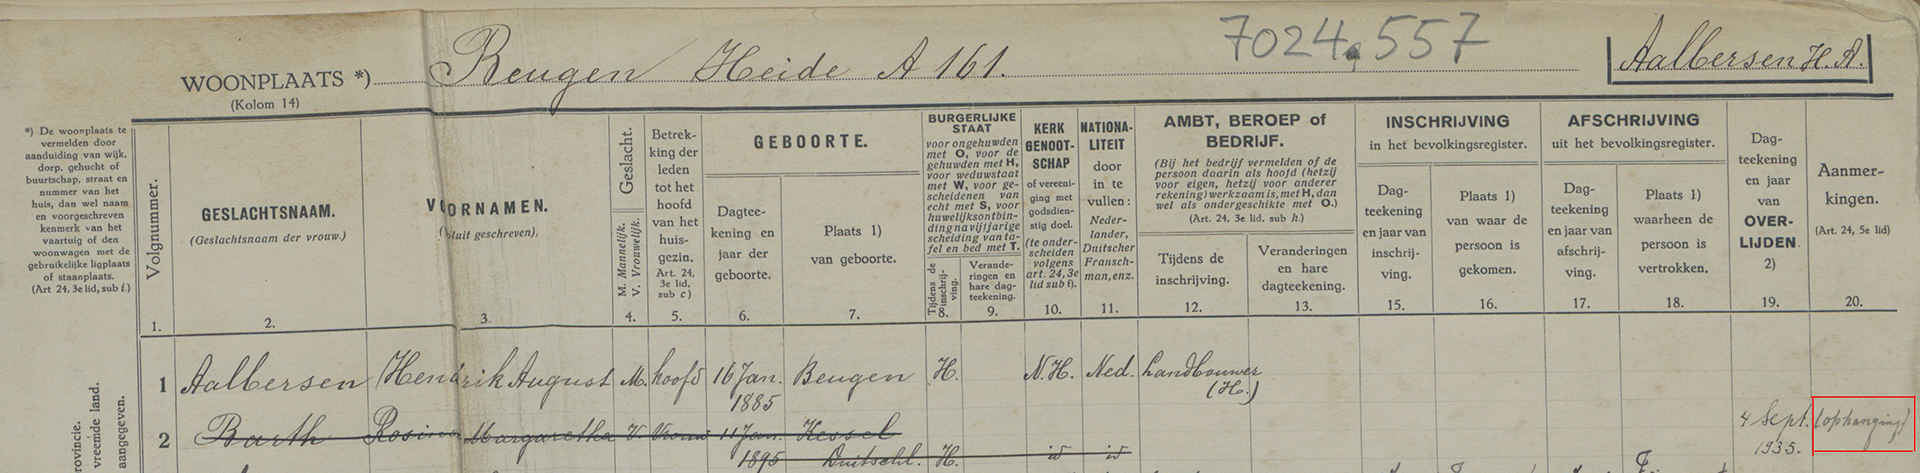 7024.557
WOONPLAATS *) Beugen Heide A 161.
Aalbersen H.A.
(Kolom 14)
*) De woonplaats te
vermelden door
aanduiding van wijk,
dorp, gehucht of
buurtschap, straat en
nummer van het
huis, dan wel naam
en voorgeschreven
kenmerk van het
vaartuig of den
woonwagen met de
gebruikelijke ligplaats
of staanplaats.
(Art 24, 3e lid, sub i.)
Volgnummer.
1.
GESLACHTSNAAM.
(Geslachtsnaam der vrouw.)
2.
VOORNAMEN.
geschreven).
3.
Geslacht.
M. Mannelijk.
V. Vrouwelijk.
4.
Betrek-
king der
leden
tot het
hoofd
van het
huis-
gezin.
Art. 24,
3e lid,
sub c)
5.
GEBOORTE.
Dagtee-
kening en
jaar der
geboorte.
6.
Plaats 1)
van geboorte.
7.
BURGERLIJKE
STAAT
voor ongehuwden
met O, voor de
gehuwden met H,
voor weduwstaat
met W, voor ge-
scheidenen van
echt met S, voor
huwelijksontbin-
ding na vijfjarige
scheiding van ta-
fel en bed met T.
Tijdens de
inschrij-
ving.
8.
Verande-
ringen en
hare dag-
teekening.
9.
KERK
GENOOT-
SCHAP
of vereeni-
ging met
godsdien-
stig doel.
(te onder-
scheiden
volgens
art. 24, 3e
lid sub f).
10.
NATIONA-
LITEIT
door
in te
vullen:
Neder-
lander,
Duitscher
Fransch-
man, enz.
11.
AMBT, BEROEP of
BEDRIJF.
(Bij het bedrijf vermelden of de
persoon daarin als hoofd (hetzij
voor eigen, hetzij voor anderer
rekening) werkzaam is, met H, dan
wel als ondergeschikte met O.)
(Art. 24, 3e lid. sub h.)
Tijdens de
inschrijving.
12.
Veranderingen
en hare
dagteekening.
13.
INSCHRIJVING
in het bevolkingsregister.
Dag-
teekening
en jaar van
inschrij-
ving.
15.
Plaats 1)
van waar de
persoon is
gekomen.
16.
AFSCHRIJVING
uit het bevolkingsregister.
Dag-
teekening
en jaar van
afschrij-
ving.
17.
Plaats 1)
waarheen de
persoon is
vertrokken.
18.
Dag-
teekening
en jaar
van
OVER-
LIJDEN.
2)
19.
Aanmer-
kingen.
(Art. 24, 5e lid)
20.
provincie.
vreemde land.
aangegeven.
1 Aalbersen Hendrik August M. hoofd 16 Jan. Beugen H. N.H. Ned. Landbouwer
1885 (H.)
2 Barth Rosina Margaretha V. Vrouw 11 Jan. Kessel 4 Sept. (ophanging)
1895 Duitschl. H. id id 1935.